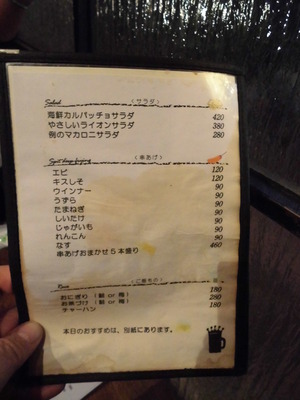 Salad （サラダ）
海鮮カルパッチョサラダ 420
やさしいライオンサラダ 380
例のマカロニサラダ 280
（串あげ）
エビ 120
キスしそ 120
ウインナー 90
うずら 90
たまねぎ 90
しいたけ 90
じゃがいも 90
れんこん 90
なす 90
串あげおまかせ５本盛り 460
Rice （ご飯もの）
おにぎり（鮭 or 梅） 180
お茶づけ（鮭 or 梅） 280
チャーハン 180
本日のおすすめは、別紙にあります。